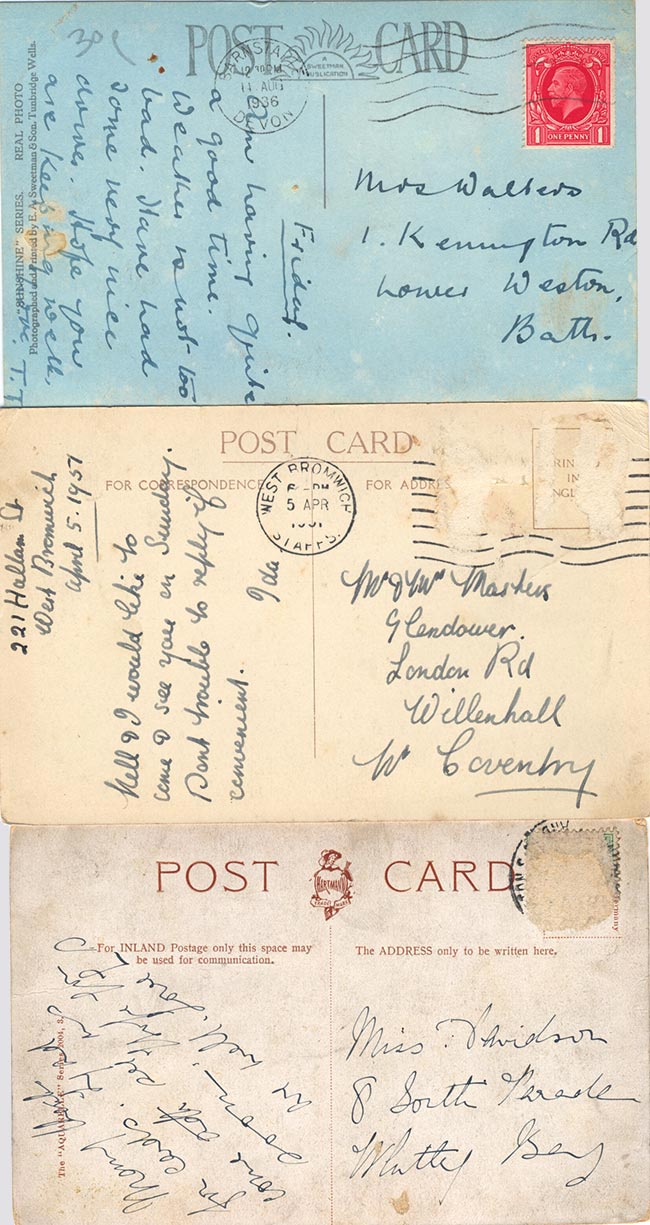 POST CARD
A SWEETMAN PUBLICATION
BARNSTAPLE
12.30 PM
11 AUG
1936
DEVON
ONE PENNY
1 1
"SUNSHINE" SERIES. REAL PHOTO
Photographed and Printed by E. A. Sweetman & Son. Tunbridge Wells.
Friday.
Am having quite
a good time.
Weather is not too
bad. Have had
some very nice
drives. Hope you
are keeping well.
Mrs Walters
1. Kennington Rd
Lower Weston,
Bath.
POST CARD
FOR CORRESPONDENCE
FOR ADDRES
WEST BROMWICH
5 APR
STAFFS.
RIN
IN
NGL
221 Hallam St
West Bromwich
April 5. 1951
Nell & I would like to
come & see you on Sunday.
Dont trouble to reply if
convenient.
Ida
Mr & Mrs Masters
Glendower.
London Rd
Willenhall
Nr Coventry
POST CARD
HARTMANN
TRADE MARK
For INLAND Postage only this space may
be used for communication.
The ADDRESS only to be written here.
The "AQUARELLE" Series 2004, 3.
ermany
Many
for cards.
come
soon
well. Love
Miss Davidson
8 South Parade
Whitley Bay